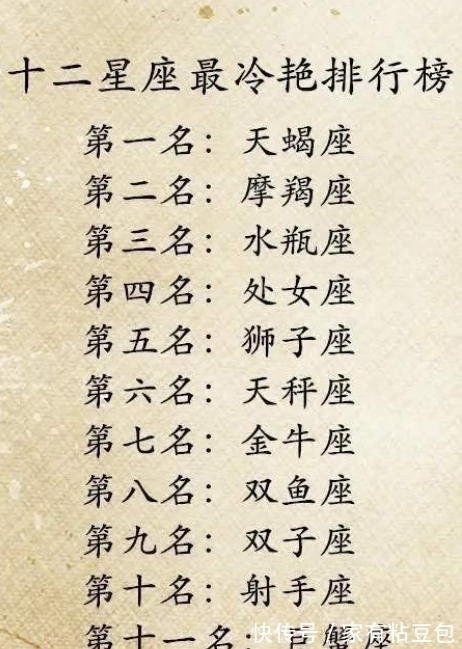 十二星座最冷艳排行榜
第一名：天蝎座
第二名：摩羯座
第三名：水瓶座
第四名：处女座
第五名：狮子座
第六名：天秤座
第七名：金牛座
第八名：双鱼座
第九名：双子座
第十名：射手座
第十一名：巨蟹座
快传号/家有粘豆包